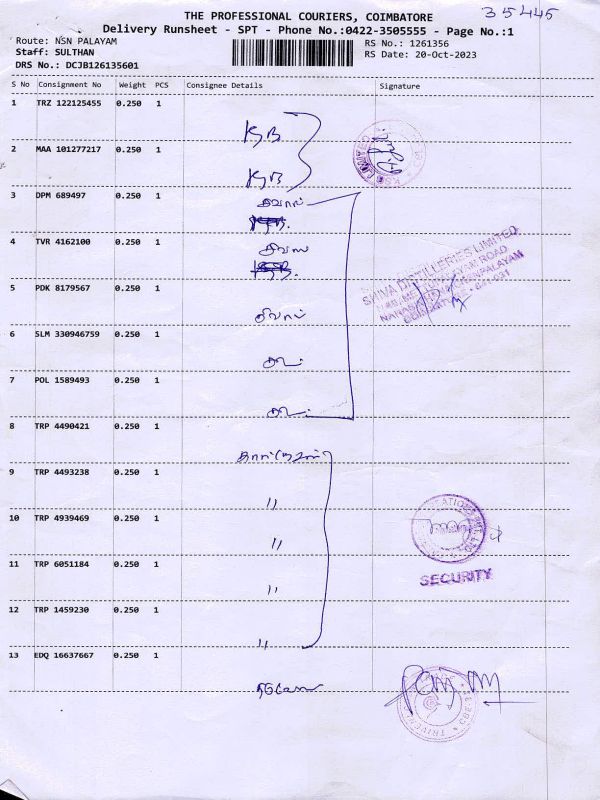 35445
THE PROFESSIONAL COURIERS, COIMBATORE
Delivery Runsheet - SPT - Phone No.:0422-3505555 - Page No.:1
Route: NSN PALAYAM
RS No.: 1261356
Staff: SULTHAN
RS Date: 20-Oct-2023
DRS No.: DCJB126135601
S No Consignment No Weight PCS Consignee Details Signature
1 TRZ 122125455 0.250 1
KSB
2 MAA 101277217 0.250 1
KSB
LIMITED
3 DPM 689497 0.250 1
4 TVR 4162100 0.250 1
SHIVA DISTILLERIES LIMITED
5 PDK 8179567 0.250 1
6 SLM 330946759 0.250 1
7 POL 1589493 0.250 1
8 TRP 4490421 0.250 1
9 TRP 4493238 0.250 1
"
10 TRP 4939469 0.250 1
"
11 TRP 6051184 0.250 1
SECURITY
"
12 TRP 1459230 0.250 1
"
13 EDQ 16637667 0.250 1